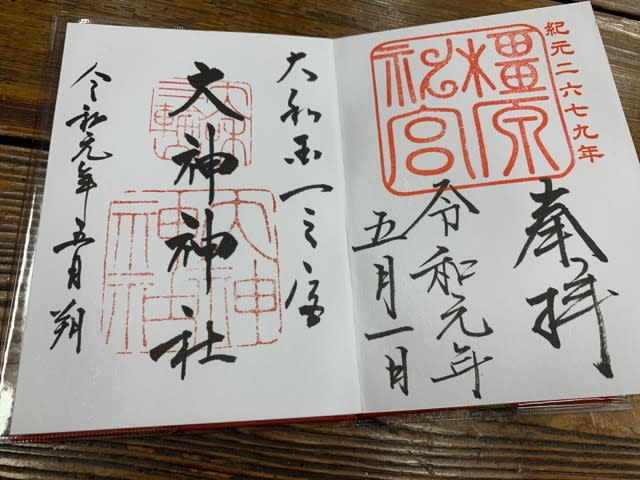 紀元二六七九年
奉拝
橿原神宮
令和元年
五月一日
大和国一之宮
大神神社
三輪山
大神神社
令和元年五月朔